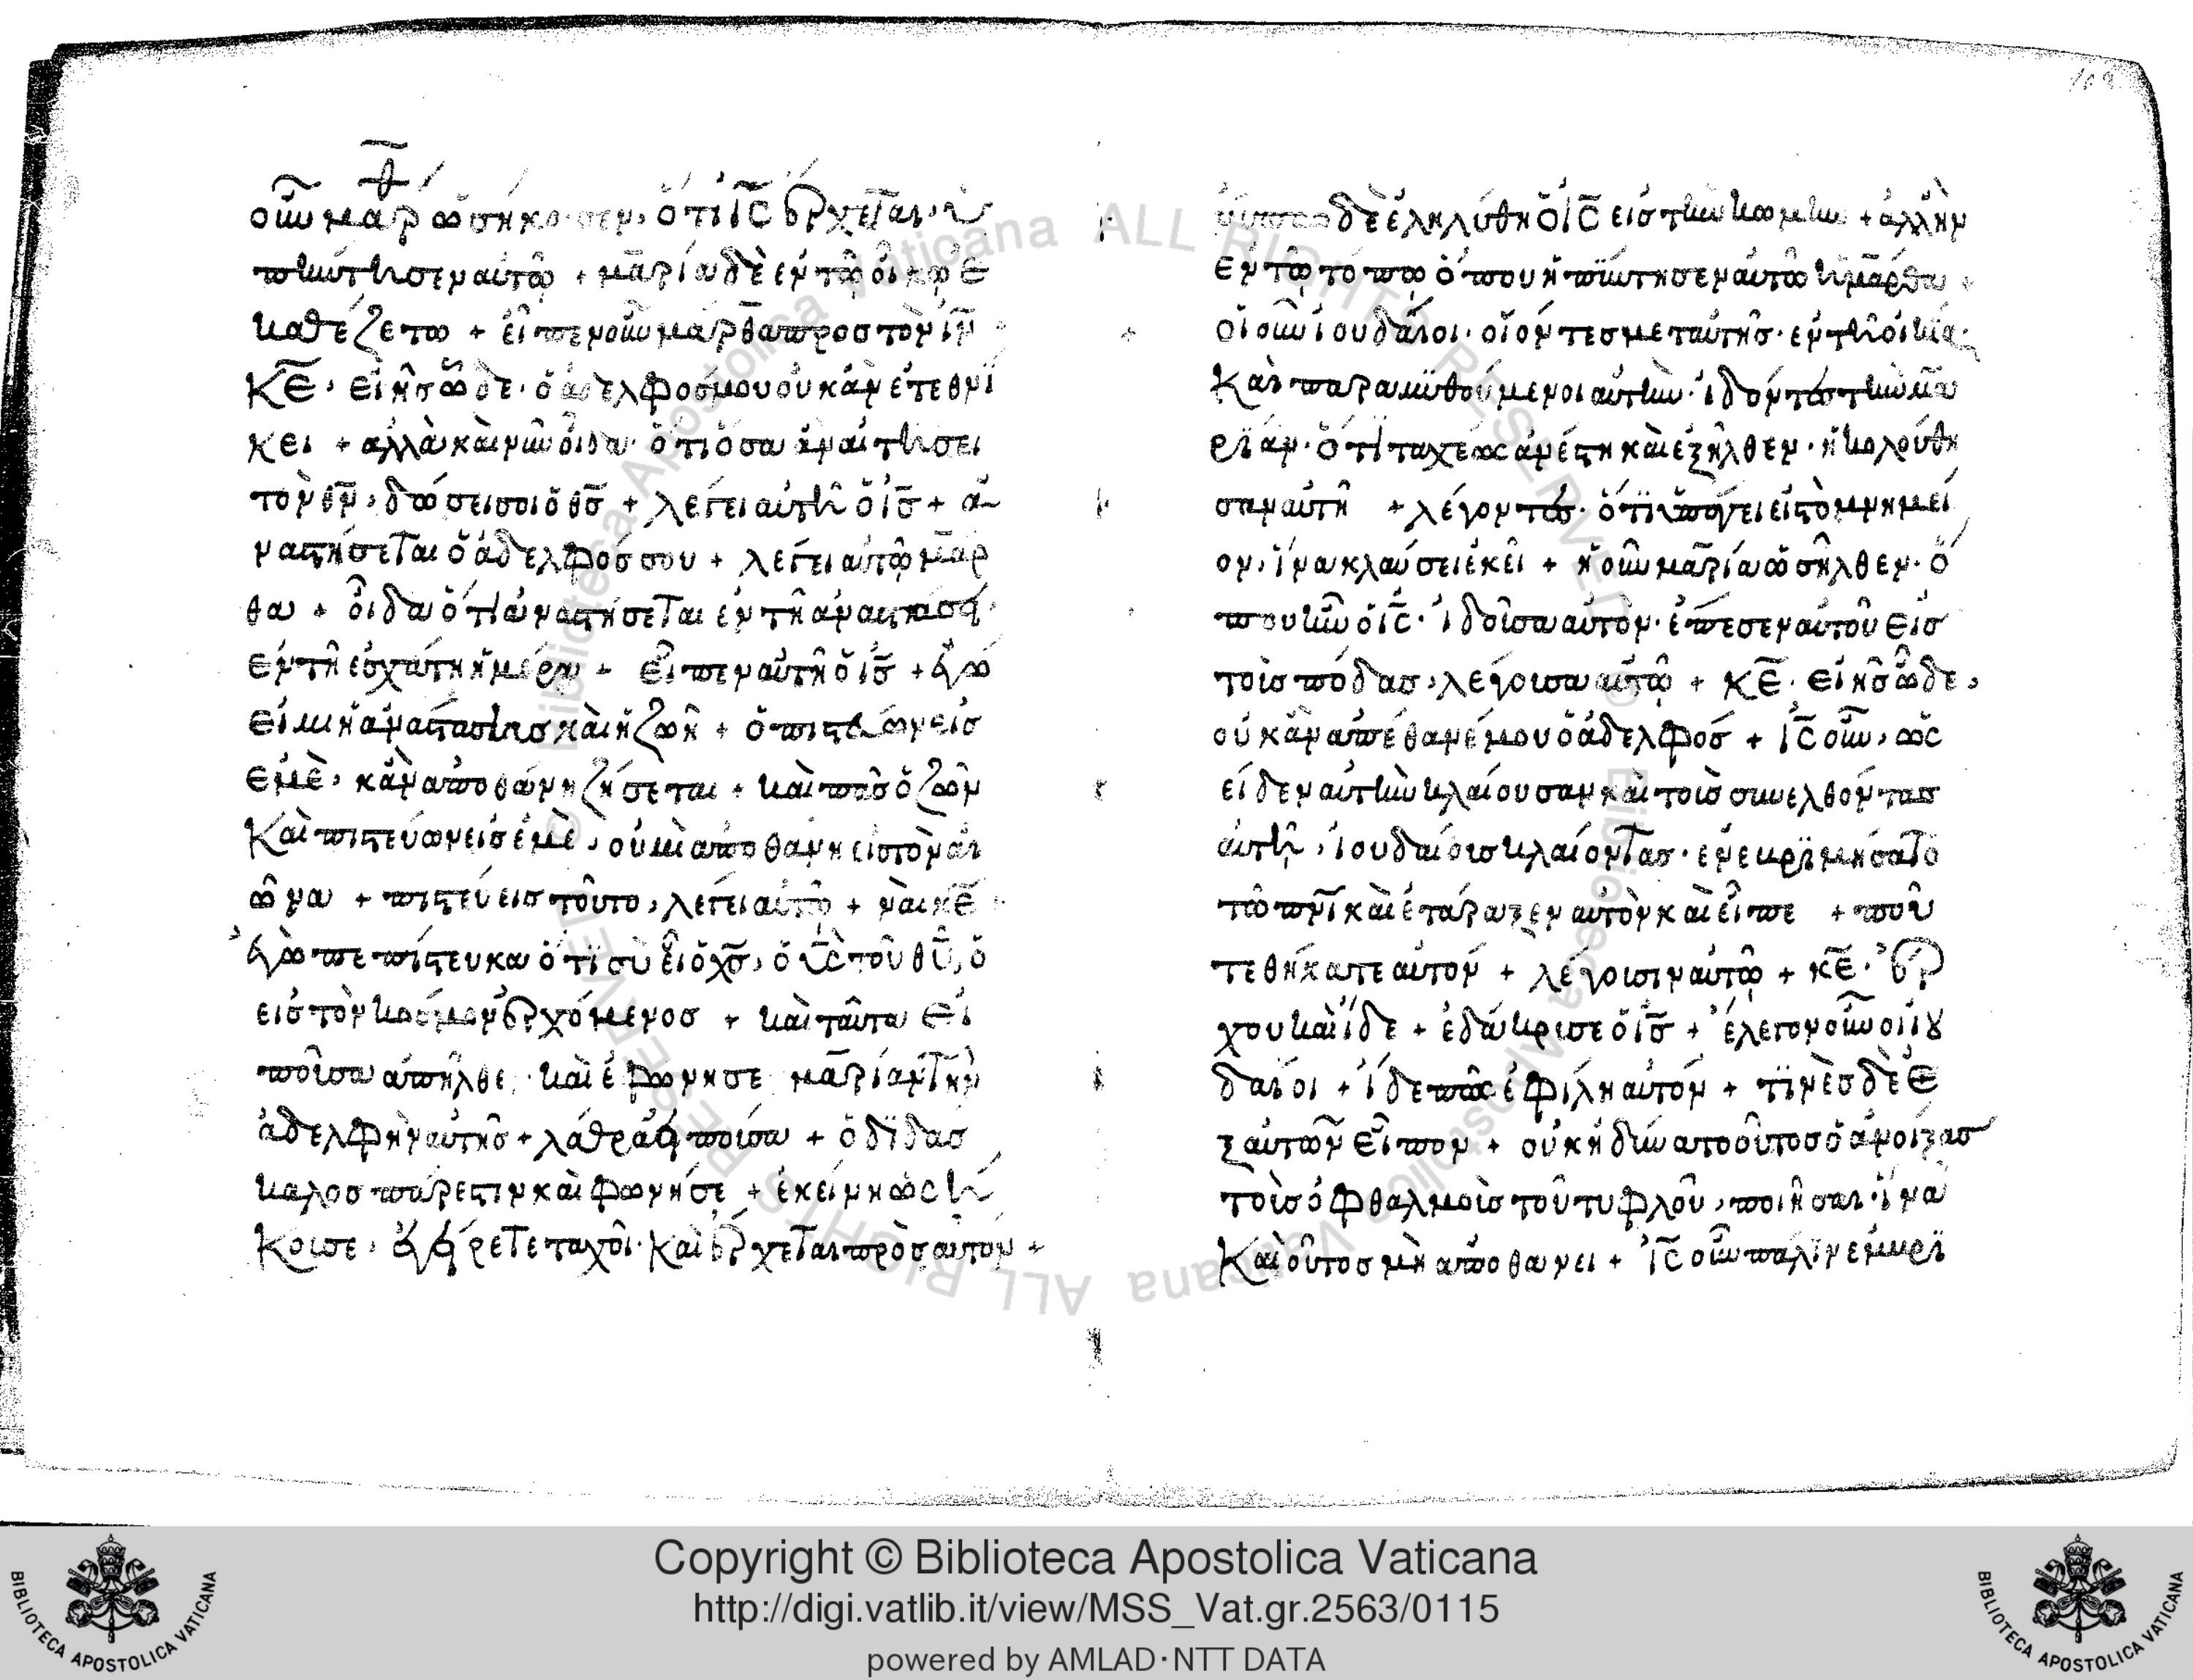 οὖν μαρθ ὡσ ήκουσεν, ὅτι ἰς̅ ἔρχεται, ὑ
πήντησεν αὐτῷ + μαρία δὲ ἐν τῷ οίκῳ ἐ
καθέζετω + εἶπεν οὖν μαρθα προσ τὸν ἰν̅
κε̅, εἰ ῆσ ὧδε, ὁ ἀδελφοσ μου οὐκ ἀν έτεθνί
κει + αλλὰ καὶ νῦν οἶδα ὅτι ὅσα ἀν αἰτήσει
τὸν θν̅, δώσει σοι ὁ θσ̅ + λέγει αὐτῆ ὁ ἰσ̅ + ἀ
ναστήσεται ὁ ἀδελφόσ σου + λέγει αὐτῷ μαρ
θα + οἶδα ὅτι ἀναστήσεται ἐν τῆ ἀναστάσει
ἐν τῆ ἐσχάτη ἡμέρα + εἶπεν αὐτῆ ὁ ἰσ̅ + ἐγώ
εἰμι ἡ ἀνάστασισ καὶ ἡ ζωὴ + ὁ πιστεύων εἰσ
ἐμὲ, κἂν ἀποθάνη ζήσεται + καὶ πᾶσ ὁ ζῶν
καὶ πιστεύων εἰσ ἐμὲ, οὐ μὶ ἀποθανη εἰσ τὸν αἰ
ῶνα + πιστεύεισ τοῦτο, λέγει αὐτῷ + ναὶ κε̅
ἐγὼ πεπίστευκα ὅτι σὺ εἶ ὁ χσ̅, ὁ υς̅ τοῦ θυ̅, ὁ
εἰσ τὸν κόσμον ἐρχόμενοσ + καὶ ταῦτα εἰ
ποῖσα ἀπῆλθε, καὶ ἐφώνησε μαρίαν τὴν
ἀδελφὴν αὐτῆσ + λάθρα εἰποίσα + ὁ δϊδασ
καλοσ πάρεστιν καὶ φωνῆσε + ἐκείνη ὡς ή
κοισε, ἐγείρετε ταχοὶ. καὶ ἔρχεται πρὸσ αὐτόν +
δὲ ἐληλύθη ὁ ἰς̅ εἰσ τὴν κώμην + ἀλλ ἦν
ἐν τῷ τόπῳ ὅπου ἠπΐντησεν αὐτῷ ἡ μάρθα
οἱ οῦν ἰουδαῖοι. οἱ ὄντεσ μετ αὐτῆσ. ἐν τῆ οἰκία.
καὶ παραμϋθούμενοι αὐτὴν. ἰδόντεσ τὴν μα
ρϊάν. ὅτϊ ταχέως ἀνέστη καὶ ἐξῆλθεν. ἠκολούθη
σαν αὐτῆ + λέγοντεσ. ὅτϊ ὑπάγει εἰσ τὸ μνημεί
ον, ἵνα κλαύσει ἐκεῖ + ἡ οὖν μαρία ὡσ ῆλθεν. ὅ
που ῆν ὁ ἰς̅. ἰδοῖσα αὐτὸν. ἔπεσεν αὐτοῦ εἰσ
τοὶσ πόδασ, λέγοισα αὐτῷ + κε̅. εἰ ῆσ ὧδε,
οὐκ ἂν ἀπέθανέ μου ὁ ἀδελφόσ + ἰς̅ οὖν, ὡς
εἶδεν αὐτὴν κλαίουσαν καὶ τοὶσ συνελθόντασ
αὐτῆ, ἰουδαίοισ κλαίοντασ. ἐνεκρϊμήσατο
τῶ πνϊ̅ καὶ ἐτάραξεν αὐτὸν καὶ εἶπε + ποῦ
τεθήκατε αὐτόν + λέγοισιν αὐτῷ + κε̅. ἔρ
χου καὶ ἴδε + ἐδάκρισε ὁ ἰσ̅ + ἔλεγον οὖν οἱ ἰου
δαῖοι + ἴδε πῶς ἐφίλη αὐτόν + τϊνὲσ δὲ ἐ
ξ αὐτῶν εἶπον + οὐκ ἠδύνατο οὗτοσ ὁ ἀνοίξασ
τοὶσ ὀφθαλμοὶσ τοῦ τυφλοῦ, ποιῆσαι. ἵνα
καὶ οὗτοσ μὴ ἀποθανει + ἰς̅ οὖν παλιν ἐμυρϊ
Copyright © Biblioteca Apostolica Vaticana
http://digi.vatlib.it/view/MSS_Vat.gr.2563/0115
powered by AMLAD·NTT DATA
BIBLIOTECA APOSTOLICA VATICANA
BIBLIOTECA APOSTOLICA VATICANA